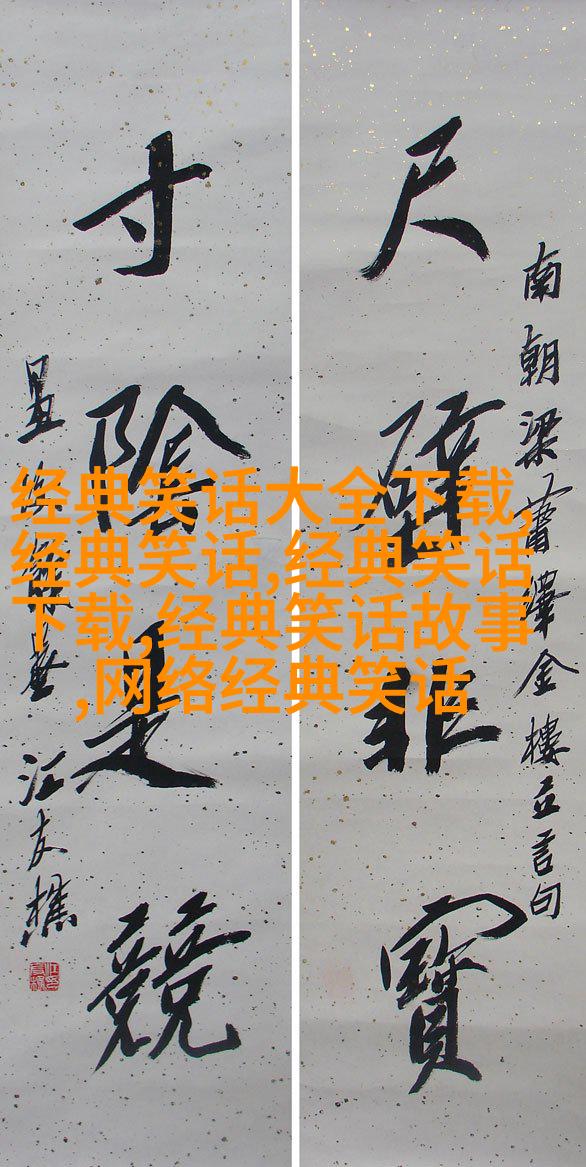 南朝梁蕭繹金樓立言句
尺璧非寶
寸陰是競
江友樵
经典笑话大全下载,
经典笑话,经典笑话
下载,经典笑话故事
,网络经典笑话